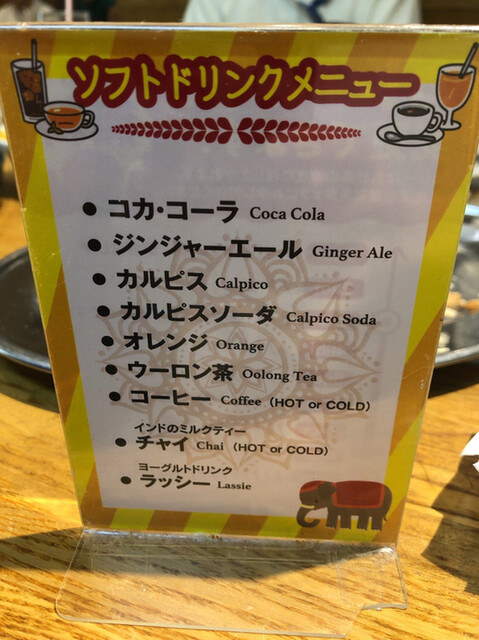 ソフトドリンクメニュー
● コカ・コーラ Coca Cola
● ジンジャーエール Ginger Ale
● カルピス Calpico
● カルピスソーダ Calpico Soda
● オレンジ Orange
● ウーロン茶 Oolong Tea
● コーヒー Coffee (HOT or COLD)
インドのミルクティー
● チャイ Chai (HOT or COLD)
ヨーグルトドリンク
● ラッシー Lassie